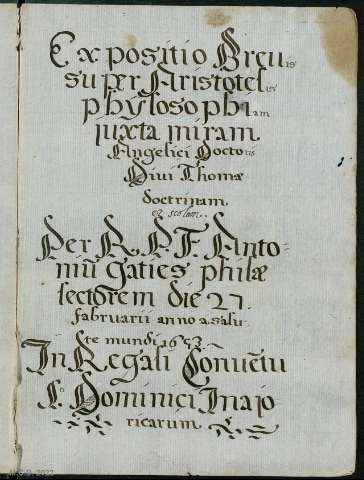 Expositio Breuis
super Aristotelis
phylosophiam
iuxta miram
Angelici Doctoris
Divi Thomæ
doctrinam
et scolam.
Per R. P. F. Anto-
niũ Gaties philæ
lectorem die 27
fabruarii anno a salu
te mundi 1653
In Regali Conuẽtu
S. Dominici Maio
ricarum.